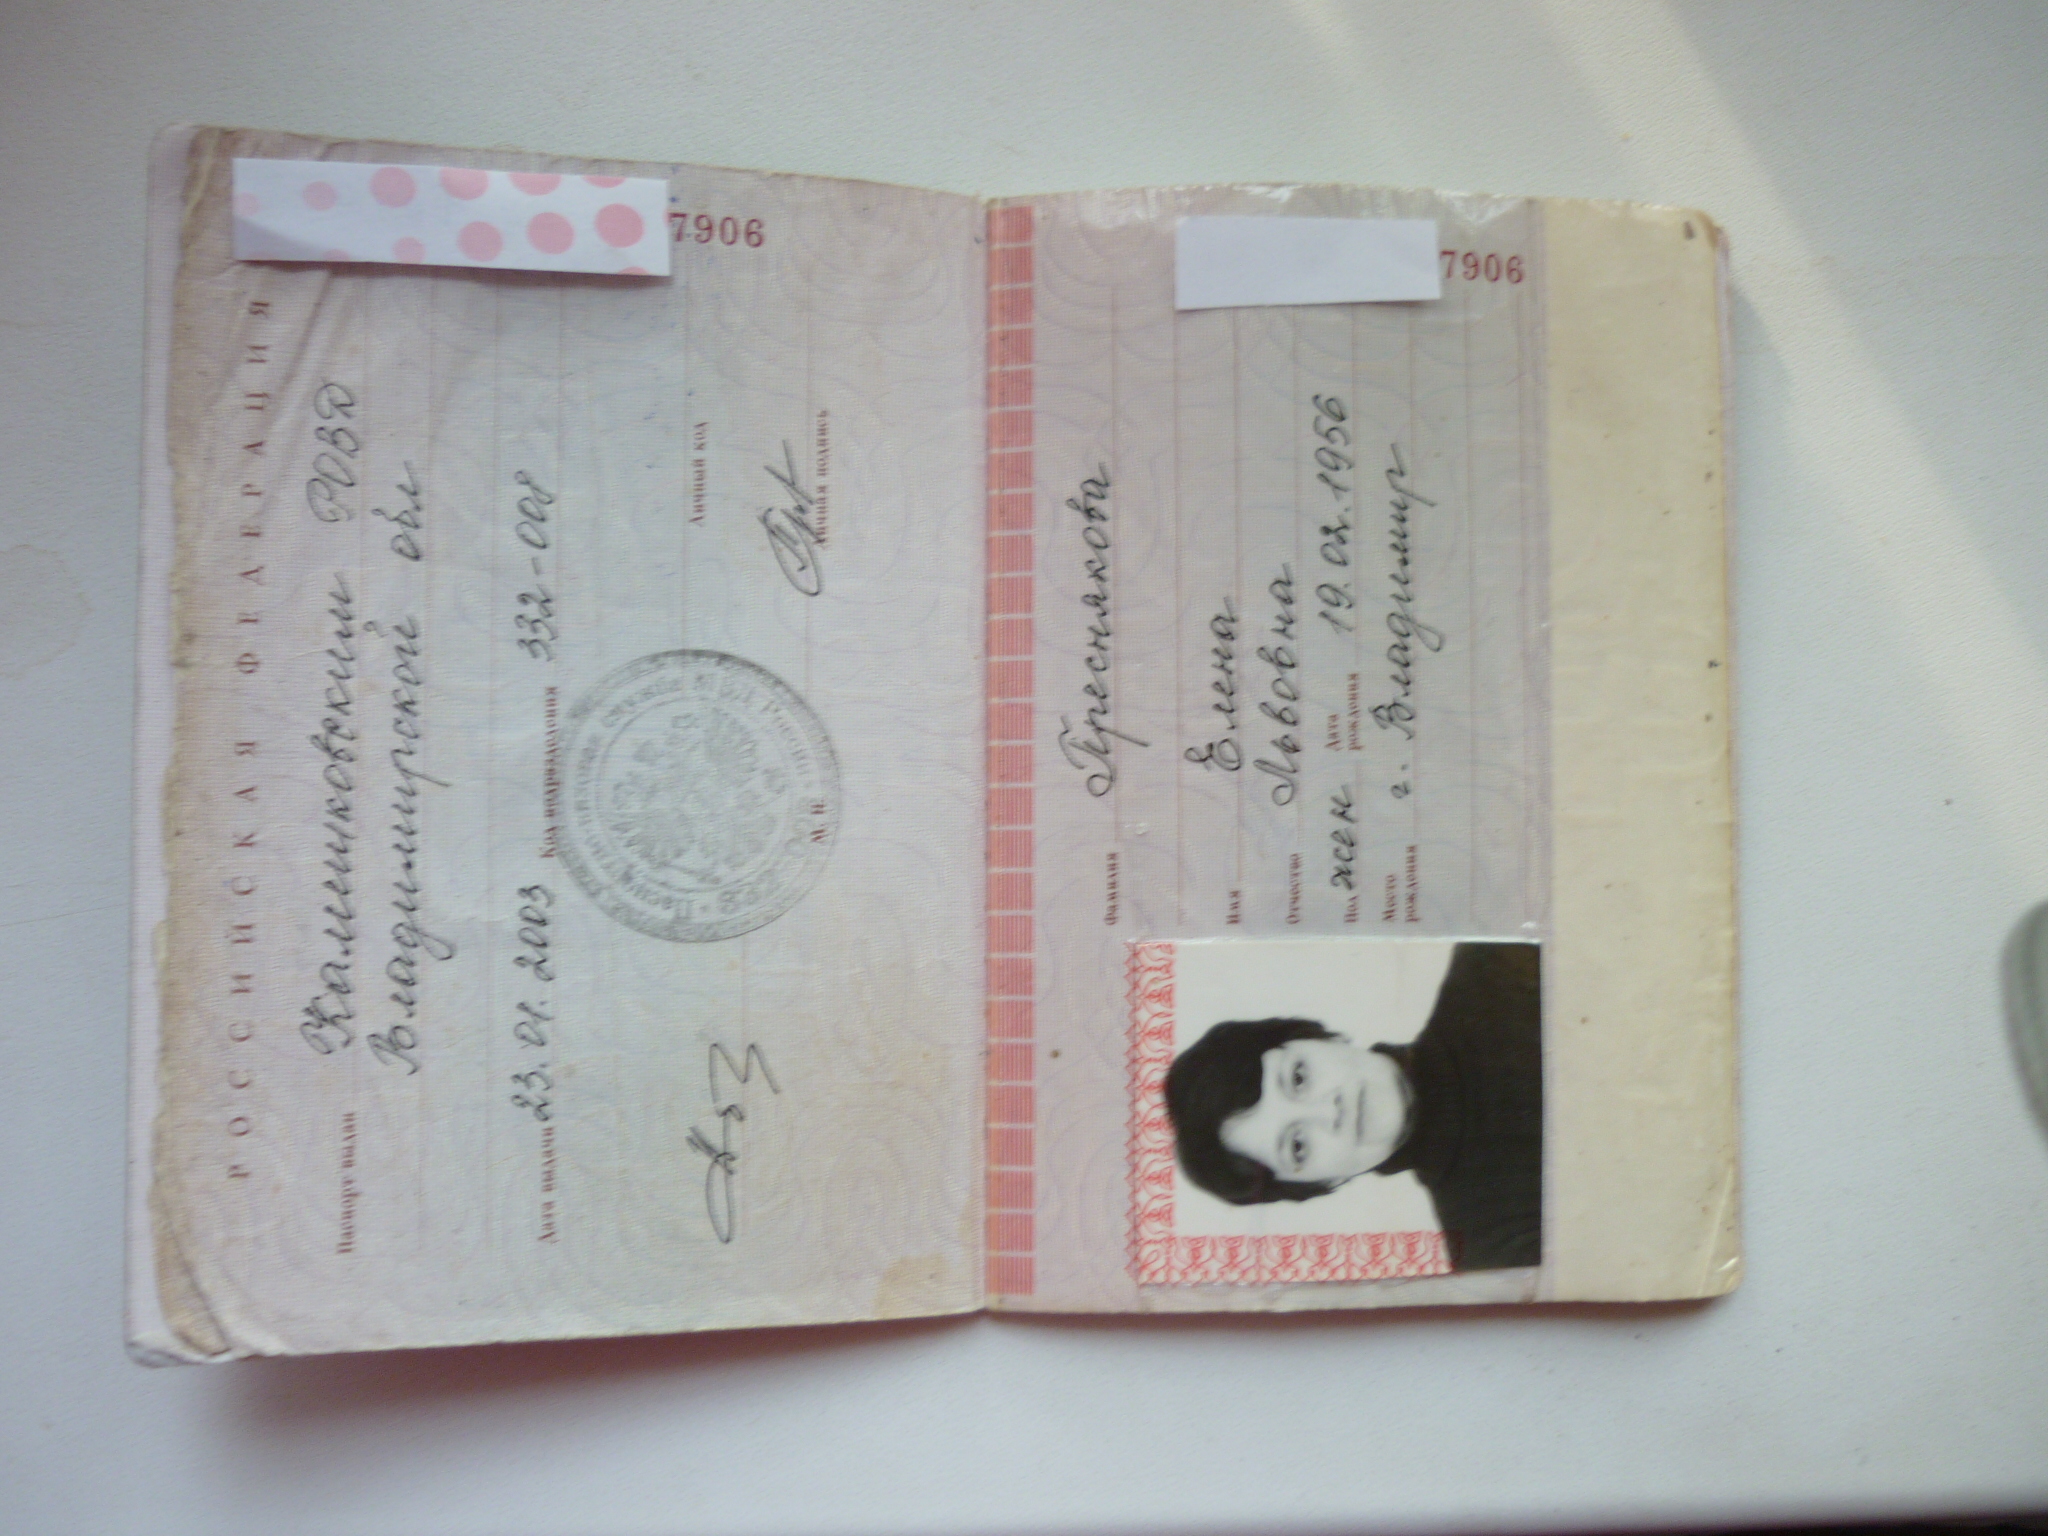 РОССИЙСКАЯ ФЕДЕРАЦИЯ
Паспорт выдан Камешковским РОВД
Владимирской обл
Дата выдачи 23.01.2003 Код подразделения 332-008
Личный код
Личная подпись
М. П.
7906
Фамилия Преснякова
Имя Елена
Отчество Львовна
Пол жен Дата рождения 19.02.1956
Место рождения г. Владимир
7906